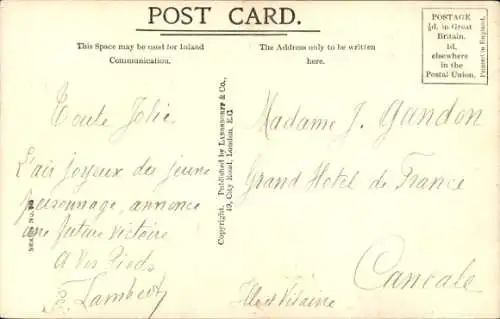 POST CARD.
This Space may be used for Inland
Communication.
The Address only to be written
here.
POSTAGE
½d. in Great
Britain.
1d.
elsewhere
in the
Postal Union.
Printed in England.
Toute Jolie
L'air joyeux des jeune
personnage, annonce
une future victoire
A Vos Pieds
Lambert
Copyright. Published by Landsdorff & Co.,
49, City Road, London, E.C
Madame J. Gandon
Grand Hotel de France
Cancale
Ille et Vilaine